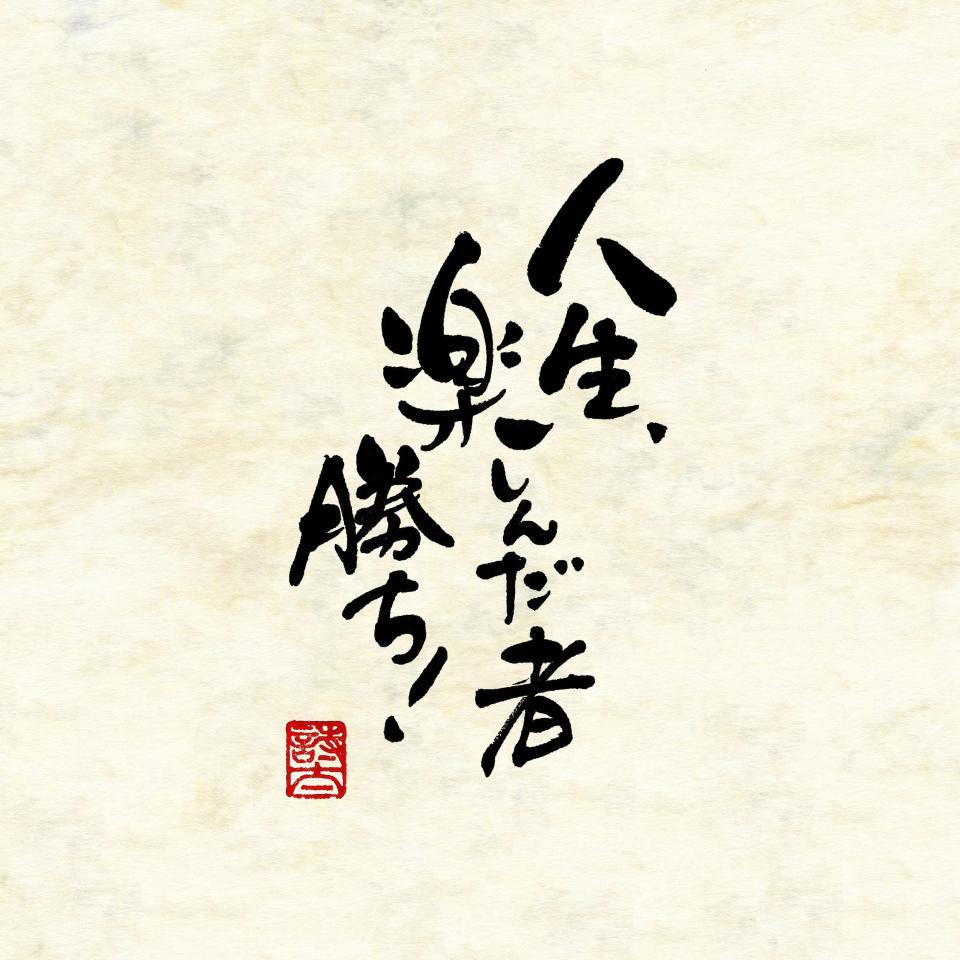 人生、
楽しんだ者
勝ち！